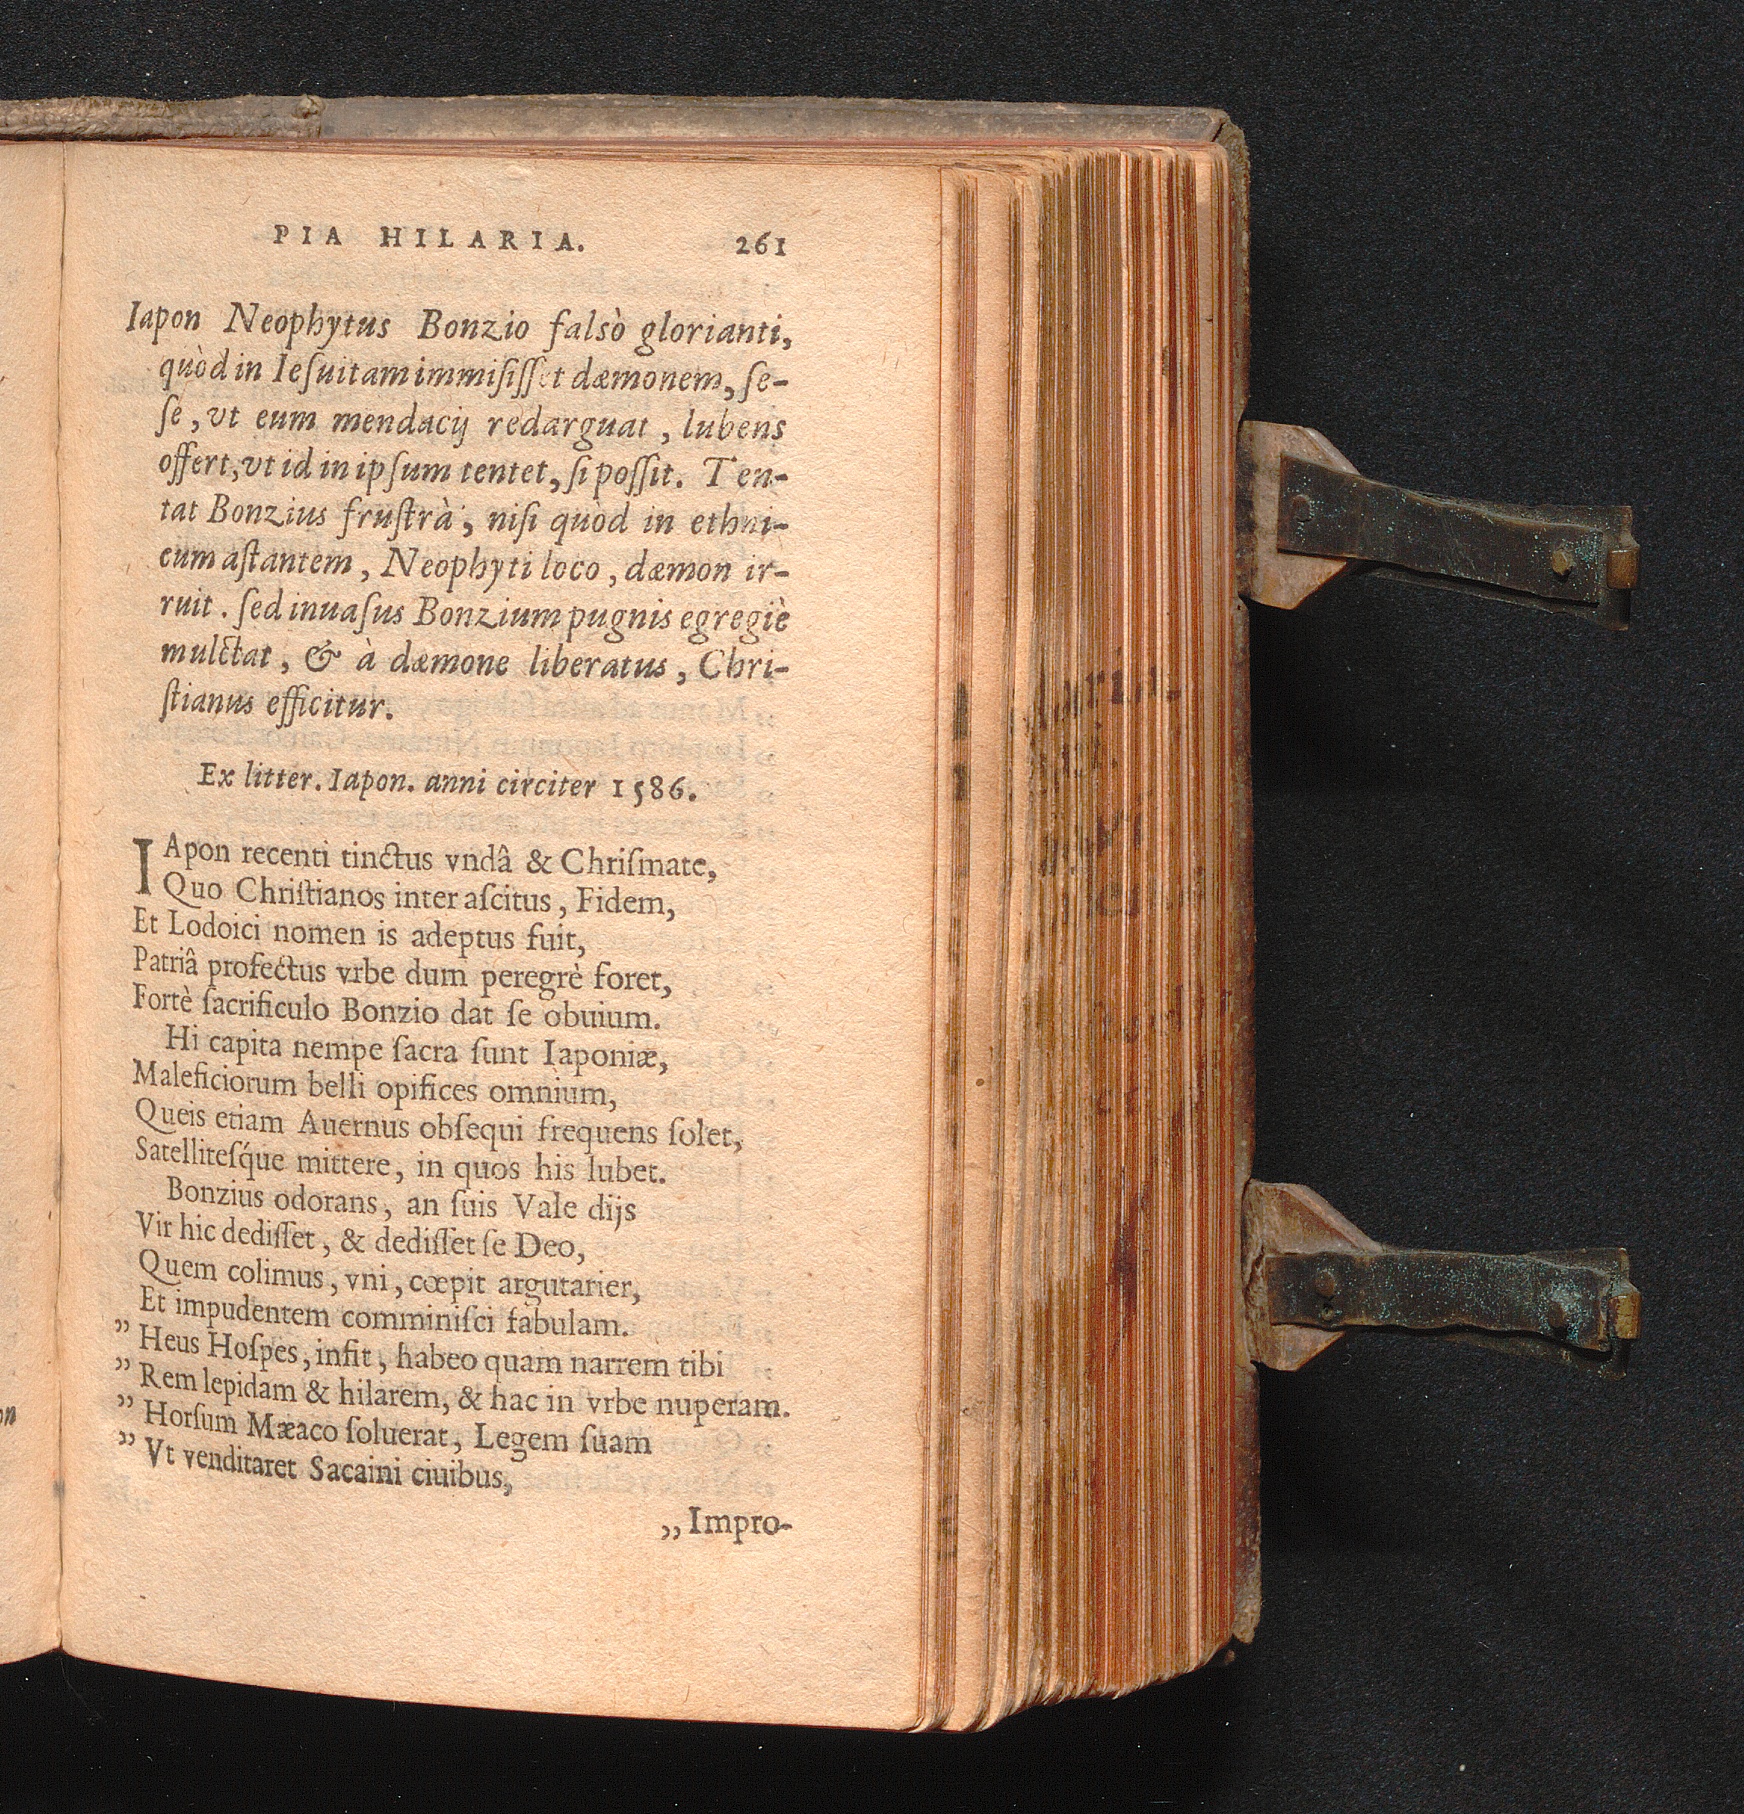 PIA HILARIA. 261
Iapon Neophytus Bonzio falsò glorianti,
quòd in Ieſuitam immiſiſſet dæmonem, ſe-
ſe, vt eum mendacij redarguat, lubens
offert, vt id in ipſum tentet, ſi poſſit. Ten-
tat Bonzius fruſtrà, niſi quòd in ethni-
cum aſtantem, Neophyti loco, dæmon ir-
ruit. ſed inuaſus Bonzium pugnis egregiè
mulctat, & à dæmone liberatus, Chri-
ſtianus efficitur.
Ex litter. Iapon. anni circiter 1586.
IApon recenti tinctus vndâ & Chriſmate,
Quo Chriſtianos inter aſcitus, Fidem,
Et Lodoici nomen is adeptus fuit,
Patriâ profectus vrbe dum peregrè foret,
Fortè ſacrificulo Bonzio dat ſe obuium.
Hi capita nempe ſacra ſunt Iaponiæ,
Maleficiorum belli opifices omnium,
Queis etiam Auernus obſequi frequens ſolet,
Satelliteſq́ue mittere, in quos his lubet.
Bonzius odorans, an ſuis Vale dijs
Vir hic dediſſet, & dediſſet ſe Deo,
Quem colimus, vni, cœpit argutarier,
Et impudentem comminiſci fabulam.
„ Heus Hoſpes, infit, habeo quam narrem tibi
„ Rem lepidam & hilarem, & hac in vrbe nuperam.
„ Horſum Mæaco ſoluerat, Legem ſuam
„ Vt venditaret Sacaini ciuibus,
„ Impro-